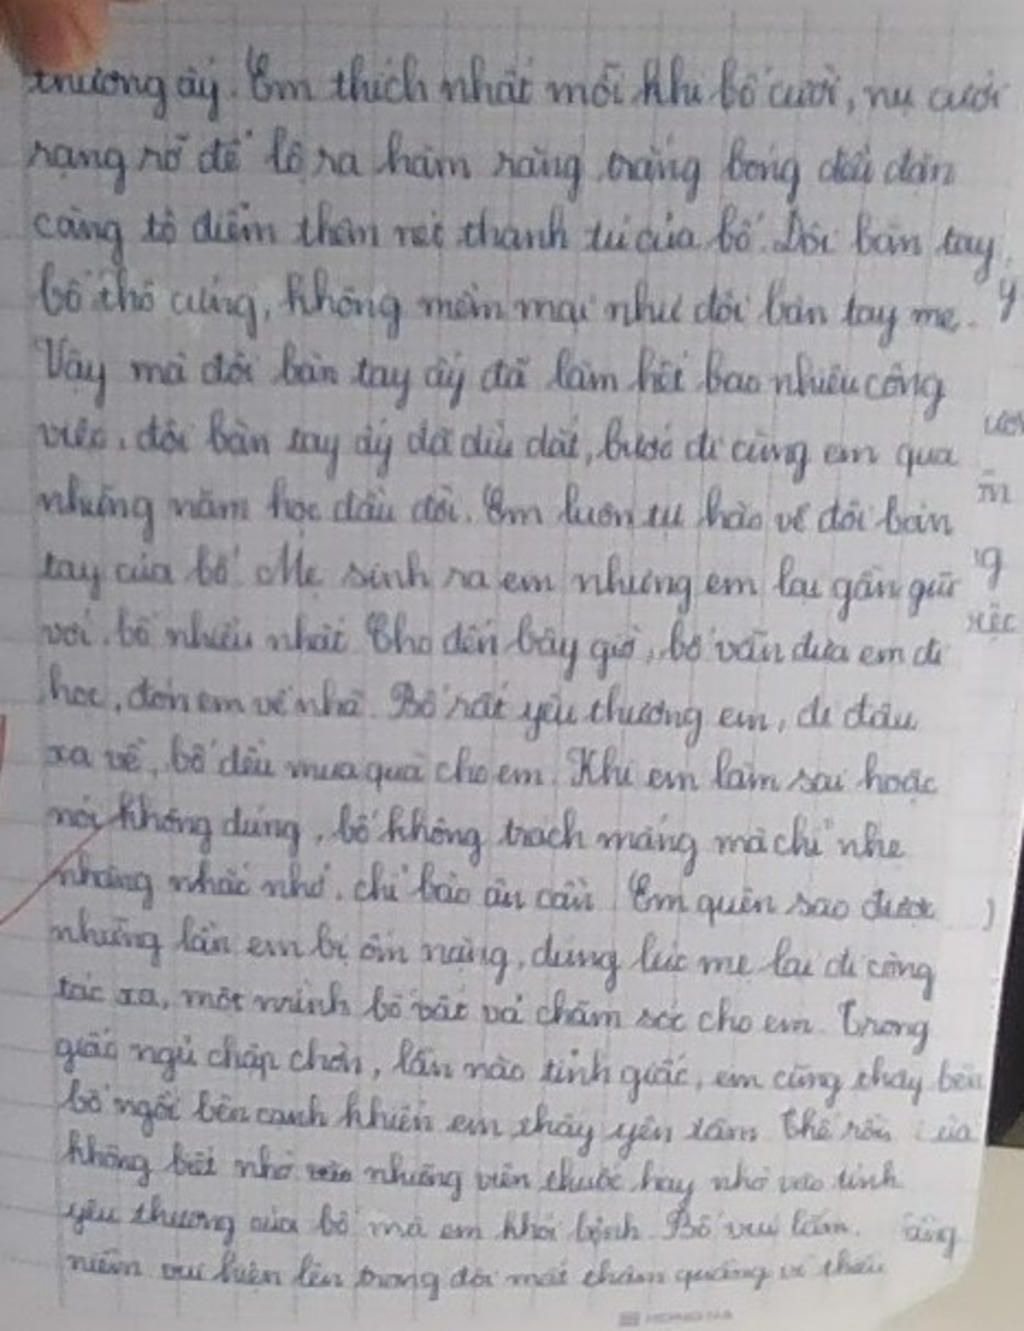 thương ấy. Em thích nhất mỗi khi bố cười, nụ cười
rạng rỡ để lộ ra hàm răng trắng bóng đều đặn
càng tô điểm thêm nét thanh tú của bố. Đôi bàn tay
bố thô cứng, không mềm mại như đôi bàn tay mẹ.
Vậy mà đôi bàn tay ấy đã làm hết bao nhiêu công
việc, đôi bàn tay ấy đã dìu dắt, bước đi cùng em qua
những năm học đầu đời. Em luôn tự hào về đôi bàn
tay của bố. Mẹ sinh ra em nhưng em lại gần gũi
với bố nhiều nhất. Cho đến bây giờ, bố vẫn đưa em đi
học, đón em về nhà. Bố rất yêu thương em, đi đâu
xa về, bố đều mua quà cho em. Khi em làm sai hoặc
nói không đúng, bố không trách mắng mà chỉ nhẹ
nhàng nhắc nhở, chỉ bảo ân cần. Em quên sao được
những lần em bị ốm nặng, đúng lúc mẹ lại đi công
tác xa, một mình bố vất vả chăm sóc cho em. Trong
giấc ngủ chập chờn, lần nào tỉnh giấc, em cũng thấy
bố ngồi bên cạnh khiến em thấy yên tâm. Thế rồi
không biết nhờ vào những viên thuốc hay nhờ vào tình
yêu thương của bố mà em khỏi bệnh. Bố vui lắm.
niềm vui hiện lên trong đôi mắt thâm quầng vì thiếu
HONG HA